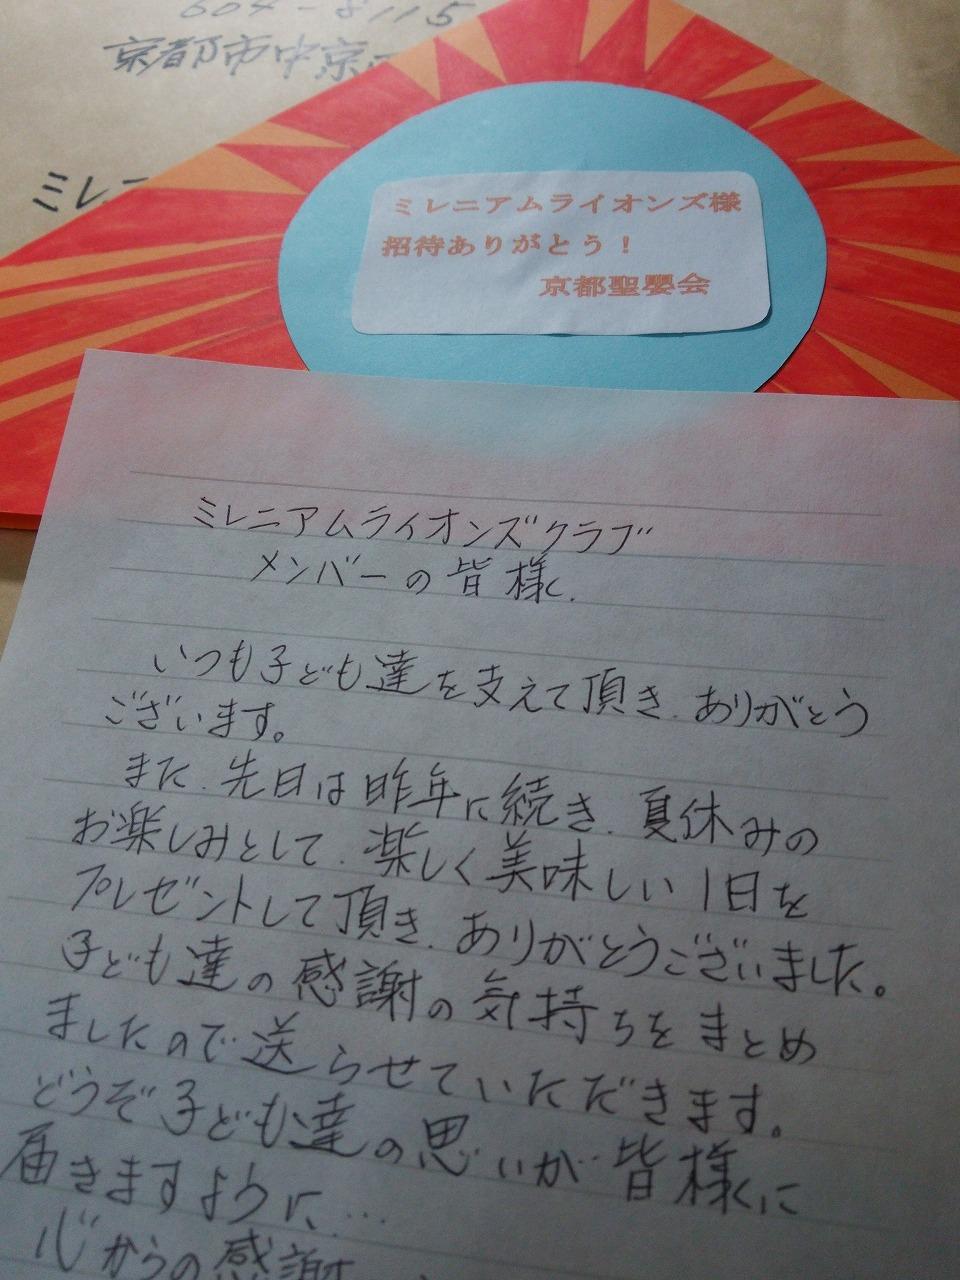 604-8115
京都市中京
ミレニ
ミレニアムライオンズ様
招待ありがとう！
京都聖嬰会
ミレニアムライオンズクラブ
メンバーの皆様
いつも子ども達を支えて頂き、ありがとう
ございます。
また、先日は昨年に続き、夏休みの
お楽しみとして、楽しく美味しい1日を
プレゼントして頂き、ありがとうございました。
子ども達の感謝の気持ちをまとめ
ましたので送らせていただきます。
どうぞ子ども達の思いが皆様に
届きますように…
心からの感謝